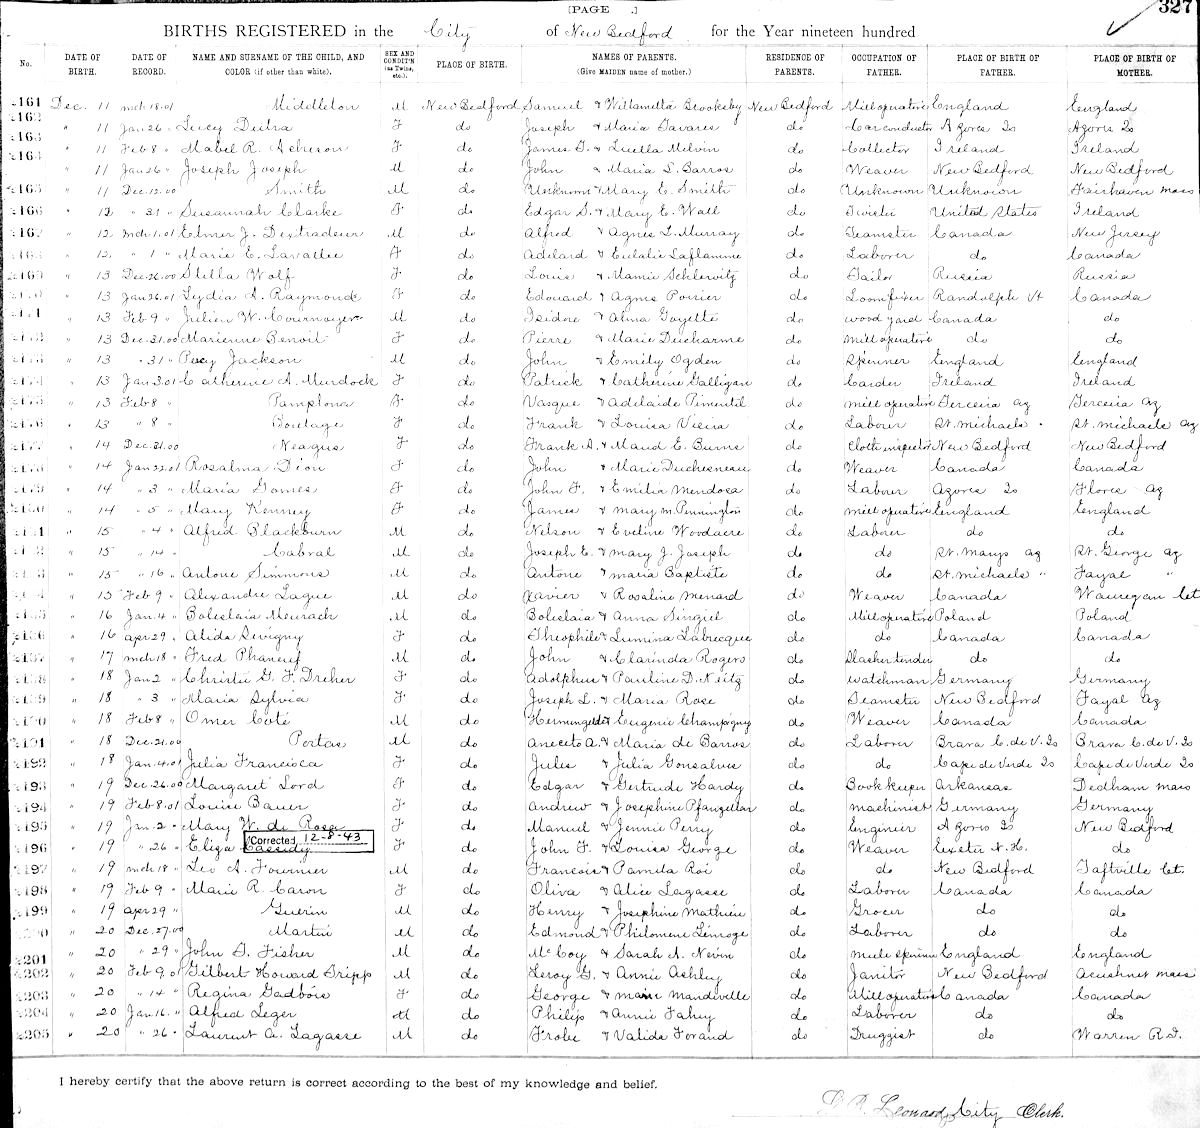 [PAGE .] 327
BIRTHS REGISTERED in the City of New Bedford for the Year nineteen hundred
No. DATE OF BIRTH. DATE OF RECORD. NAME AND SURNAME OF THE CHILD, AND COLOR (if other than white). SEX AND CONDIT'N (as Twins, etc.). PLACE OF BIRTH. NAMES OF PARENTS. (Give MAIDEN name of mother.) RESIDENCE OF PARENTS. OCCUPATION OF FATHER. PLACE OF BIRTH OF FATHER. PLACE OF BIRTH OF MOTHER.
2161 Dec. 11 Mch 18.01 Middleton M New Bedford Samuel & Willametta Brooksby New Bedford Mill operative England England
2162 " 11 Jan 26 " Lucy Dutra F do Joseph & Maria Tavares do Car conductor Azores Is Azores Is
2163 " 11 Feb 8 " Mabel R. Acheson F do James G. & Luella Melvin do Collector Ireland Ireland
2164 " 11 Jan 26 " Joseph Joseph M do John & Maria L. Barros do Weaver New Bedford New Bedford
2165 " 11 Dec. 12.00 Smith M do Unknown & Mary E. Smith do Unknown Unknown Fairhaven Mass
2166 " 12 " 31 " Susannah Clarke F do Edgar S. & Mary E. Wall do Twister United States Ireland
2167 " 12 Mch 1.01 Elmer J. Dextradeur M do Alfred & Agnes L. Murray do Teamster Canada New Jersey
" 12 " 1 " Marie E. Lavallee F do Adelard & Eulalie Laflamme do Laborer do Canada
2169 " 13 Dec. 26.00 Stella Wolf F do Louis & Mamie Schlervitz do Tailor Russia Russia
" 13 Jan 26.01 Lydia A. Raymond F do Edouard & Agnes Poirier do Loomfixer Randolph Vt Canada
" 13 Feb 9 " Julien W. Cournoyer M do Isidore & Alma Goyette do wood yard Canada do
" 13 Dec. 31.00 Marienne Benoit F do Pierre & Marie Ducharme do Mill operative do do
" 13 " 31 " Percy Jackson M do John & Emily Ogden do Spinner England England
2174 " 13 Jan 3.01 Catherine A. Murdock F do Patrick & Catherine Galligan do Carder Ireland Ireland
2175 " 13 Feb 8 " Pamplona F do Vasque & Adelaide Pimentil do Mill operative Terceira Az Terceira Az
2176 " 13 " 8 " Boutage F do Frank & Louisa Vieira do Laborer St. Michaels " St. Michaels Az
2177 " 14 Dec. 31.00 Neagus F do Frank A. & Maud E. Burns do Cloth inspector New Bedford New Bedford
" 14 Jan 22.01 Rosalma Dion F do John & Marie Duchesneau do Weaver Canada Canada
2179 " 14 " 3 " Maria Gomes F do John F. & Emilia Mendosa do Laborer Azores Is Flores Az
" 14 " 5 " Mary Kenney F do James & Mary M. Pennington do Mill operative England England
" 15 " 4 " Alfred Blackburn M do Nelson & Eveline Woodacre do Laborer do do
" 15 " 14 " Cabral M do Joseph E. & Mary J. Joseph do do St. Marys Az St. George Az
" 15 " 16 " Antone Simmons M do Antone & Maria Baptiste do do St. Michaels " Fayal "
" 15 Feb 9 " Alexandre Lague M do Xavier & Rosaline Menard do Weaver Canada Wauregan Ct.
2185 " 16 Jan. 4 " Boleslaia M do Boleslaia & Anna do Mill operative Poland Poland
2186 " 16 Apr 29 " Alida Sevigny F do Theophile & Lumina Labrecque do do Canada Canada
2187 " 17 Mch 18 " Fred Phaneuf M do John & Clarinda Rogers do Slasher tender do do
2188 " 18 Jan 2 " Christie G. F. Dreher F do Adolphus & Pauline D. Neitz do Watchman Germany Germany
2189 " 18 " 3 " Maria Sylvia F do Joseph L. & Maria Rose do Teamster New Bedford Fayal Az
2190 " 18 Feb 8 " Omer Coté M do Hermingelde & Eugenie Champigny do Weaver Canada Canada
2191 " 18 Dec. 21.00 Portas M do Aneceto A. & Maria de Barros do Laborer Brava C. de V. Is Brava C. de V. Is
2192 " 18 Jan. 4.01 Julia Francisca F do Jules & Julia Gonsalves do do Cape de Verde Is Cape de Verde Is
2193 " 19 Dec. 26.00 Margaret Lord F do Edgar & Gertrude Hardy do Bookkeeper Arkansas Dedham Mass
2194 " 19 Feb 8.01 Louise Bauer F do Andrew & Josephine do Machinist Germany Germany
2195 " 19 Jan. 2 " Mary W. de Rosa F do Manuel & Jennie Perry do Engineer Azores Is New Bedford
Corrected 12-8-43
2196 " 19 " 26 " Eliza Cassidy F do John F. & Louisa George do Weaver Exeter N.H. do
2197 " 19 Mch 18 " Leo A. Fournier M do Francois & Pamila Roi do do New Bedford Taftville Ct.
2198 " 19 Feb 9 " Marie R. Caron F do Oliva & Alice Lagasse do Laborer Canada Canada
2199 " 19 Apr 29 " Guerin M do Henry & Josephine Mathieu do Grocer do do
2200 " 20 Dec. 27.00 Martin M do Edmond & Philomene Limoge do Laborer do do
2201 " 20 " 29 " John G. Fisher M do McCoy & Sarah A. Nevin do Mule spinner England England
2202 " 20 Feb 9.01 Gilbert Howard Tripp M do Leroy G. & Annie Ashley do Janitor New Bedford Acushnet Mass
2203 " 20 " 14 " Regina Gadbois F do George & Marie Mandeville do Mill operative Canada Canada
2204 " 20 Jan. 16 " Alfred Leger M do Philip & Annie Fahey do Laborer do do
2205 " 20 " 26 " Laurent A. Lagasse M do & Valida Forand do Druggist do Warren R.I.
I hereby certify that the above return is correct according to the best of my knowledge and belief.
Leonard, City Clerk.